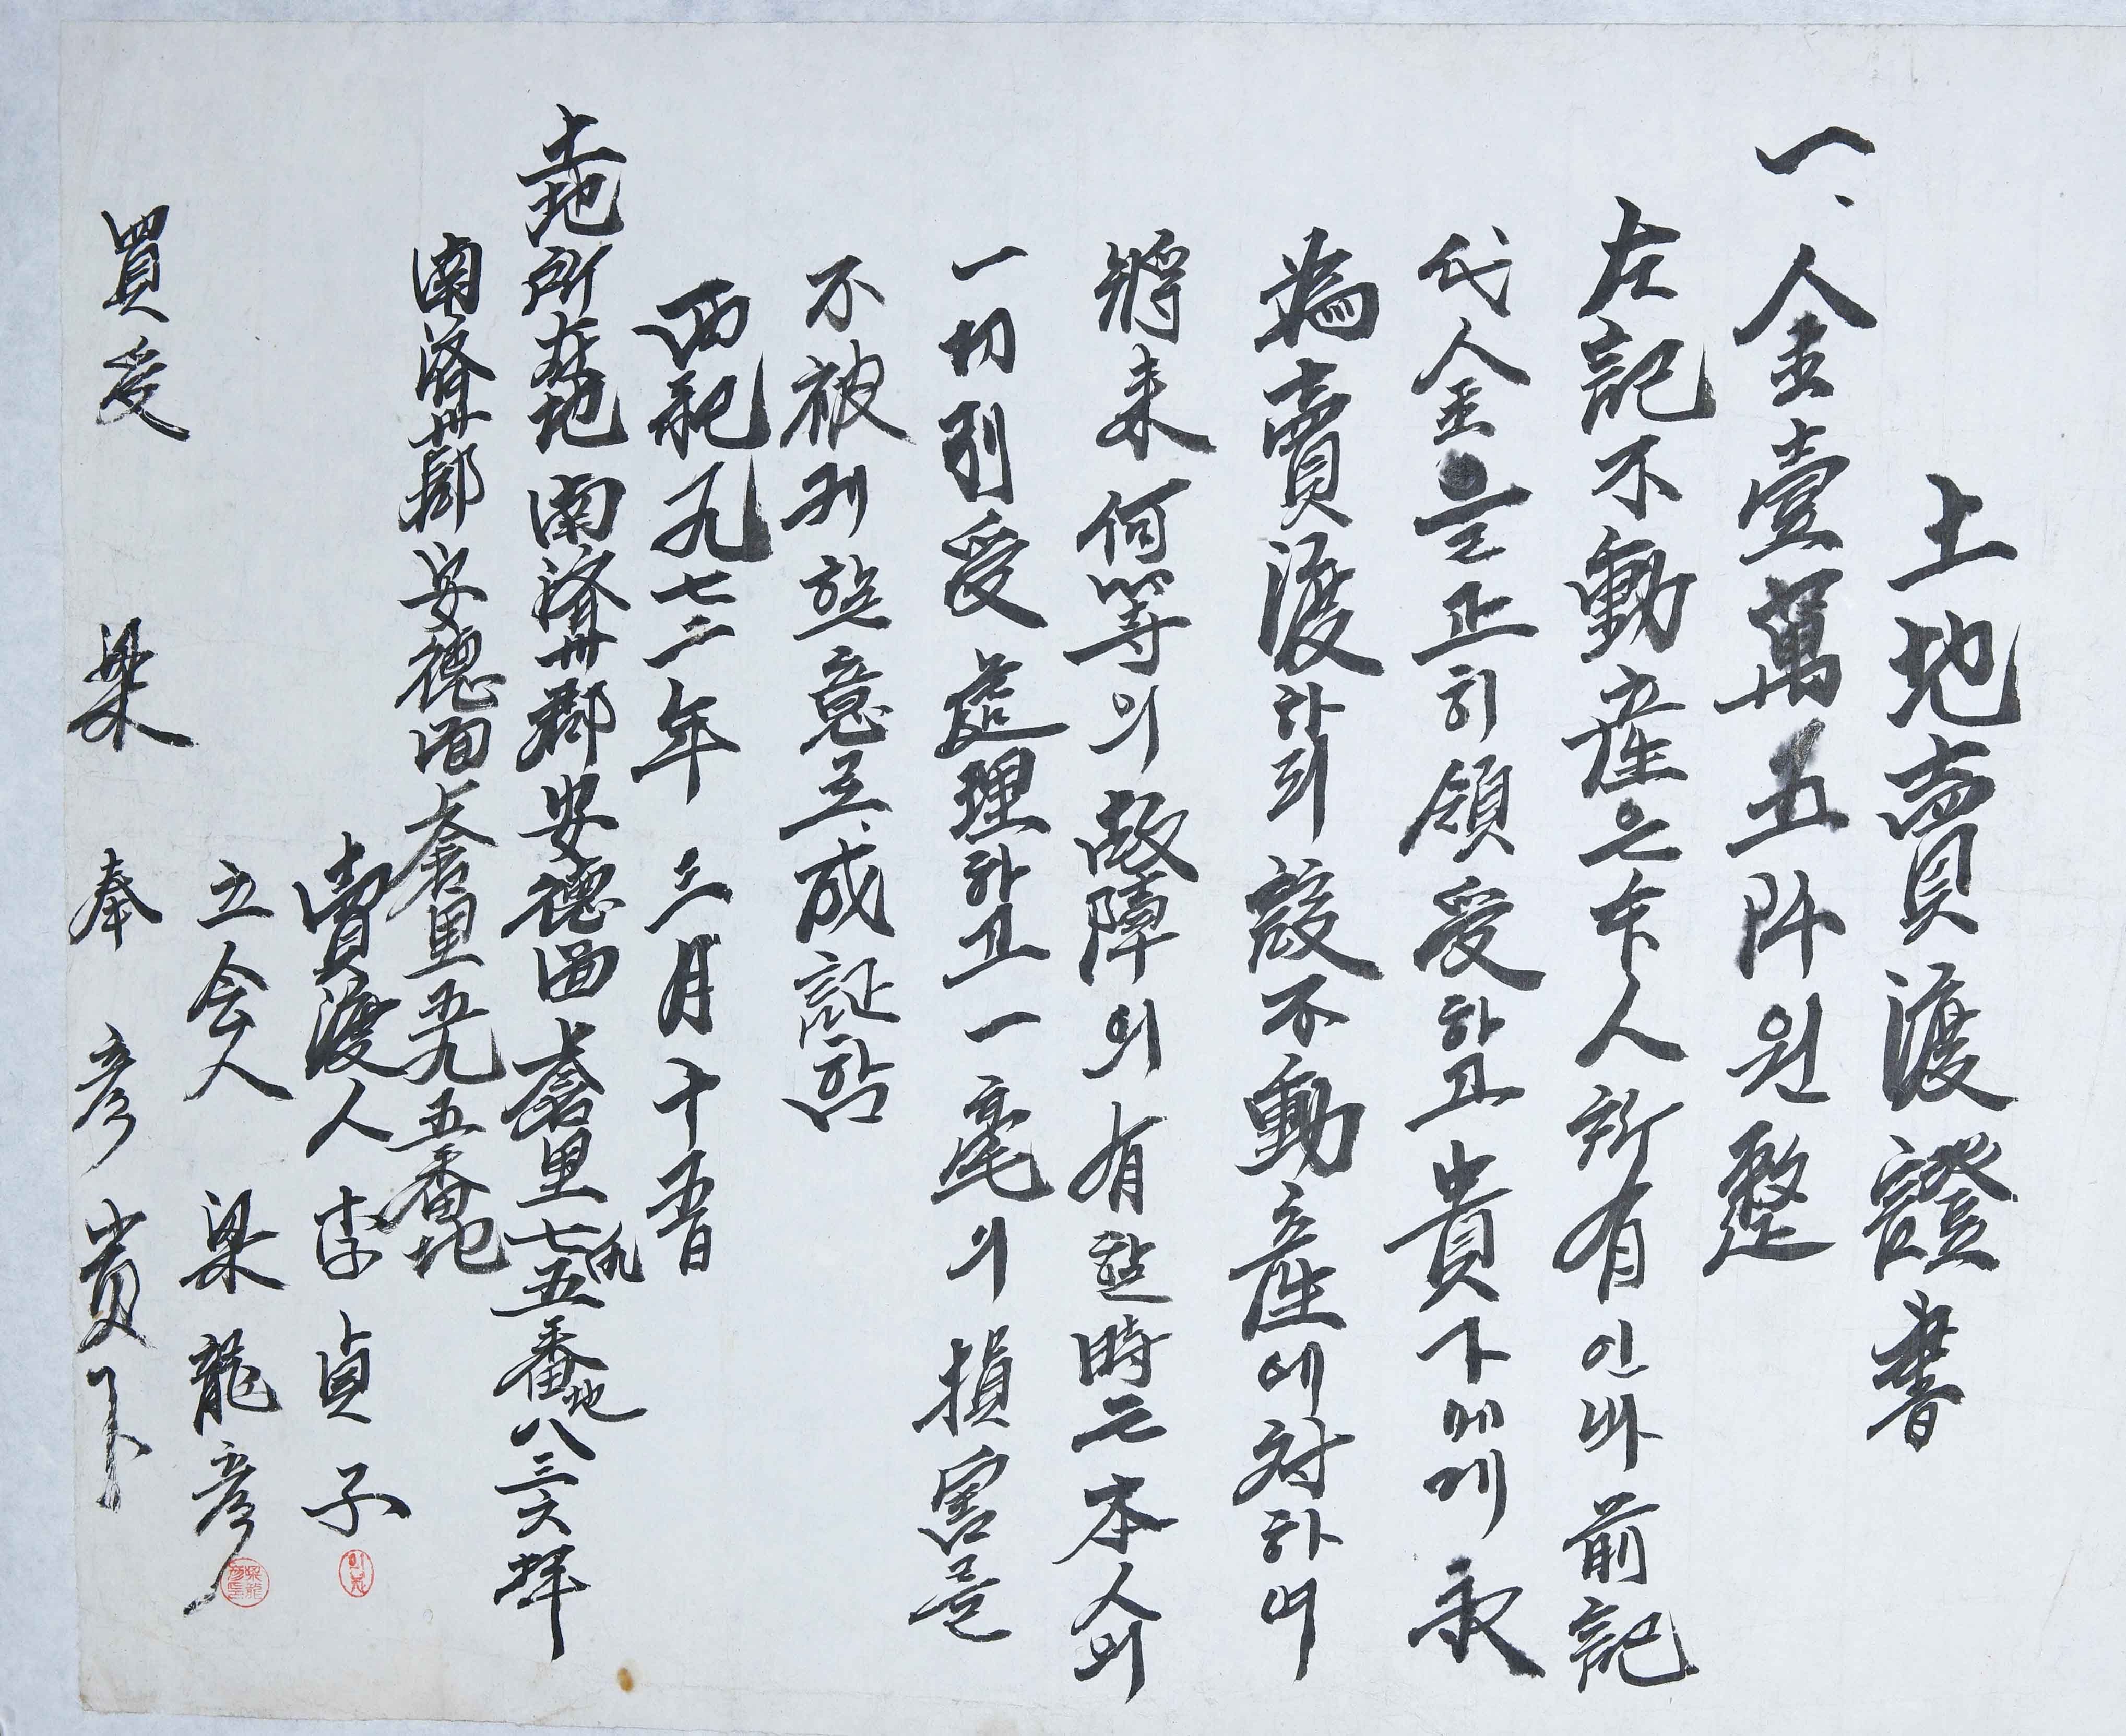 土地賣渡證書
一、金壹萬五阡원整
左記不動產은本人所有인바前記
代金을正히領受하고貴下에게永
為賣渡하되 該不動產에対하여
將来何等의故障이有할時는本人이
一切 引受處理하고一毫의損害를
不被 할意로成証함
西紀一九七二年 三月十五日
土地所在地 南濟州郡安德面 倉里七九五番地 八三六坪
南濟州郡安德面 倉里 五九五番地
賣渡人 李貞子
立会人 梁龍彦
買受 梁奉彦 貴下